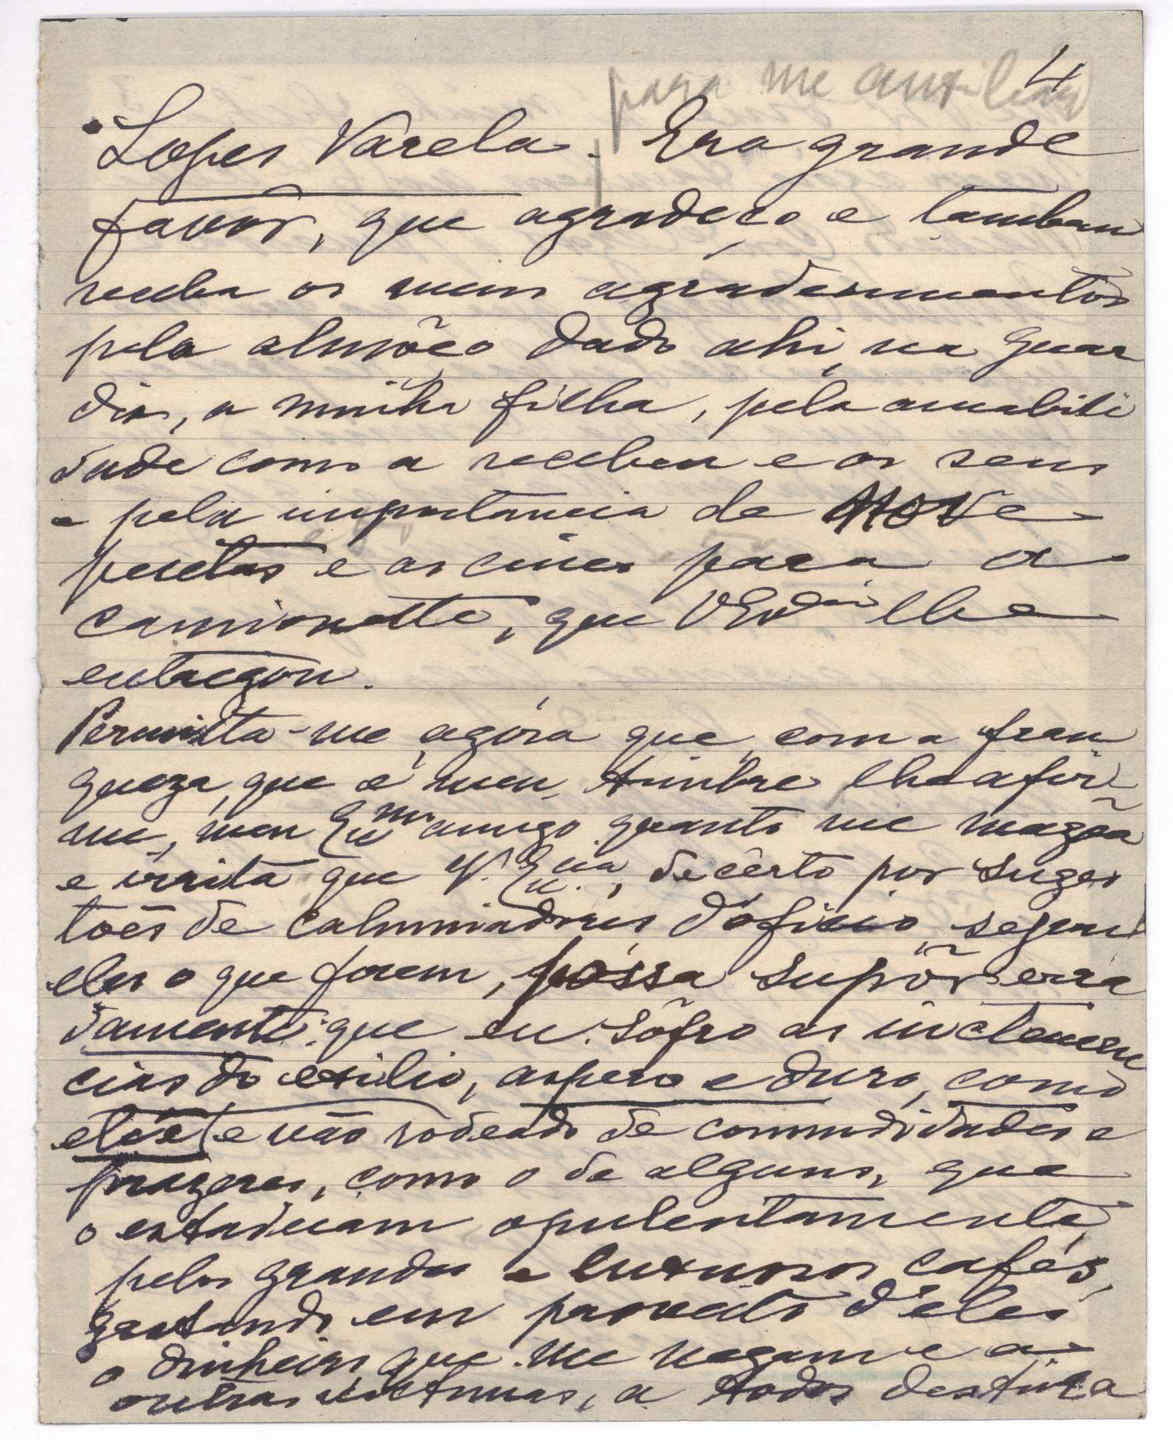 4
para me auxiliar
Lopes Varela. Era grande
favôr, que agradeço e tambem
receba os meus agradecimentos
pelo almôço dado ahi, na Guar
dia, a minha filha, pela amabili
dade como a recebeu e os seus
e pela importancia de nove
pesetas e as cinco para a
camionette, que V. lhe
entregou.
Permitta-me agóra que, com a fran
queza, que é meu timbre, lhe afir
me, meu Exmo amigo quanto me magôa
e irrita que V. Excia., decérto por suges
toēs de caluniadores d'oficio, sejam
eles o que forem, póssa supôr erra
damente: que eu sôfro as inclemen
cias do exilio, aspero e duro, como
ele é e não rodeado de commodidades e
prazeres, como o de alguns, que
o estadeiam opulentamente
pelos grandes e luxuosos cafés,
gastando em proveito d'eles
o dinheiro que me negam e a
outras victimas, a todos destina